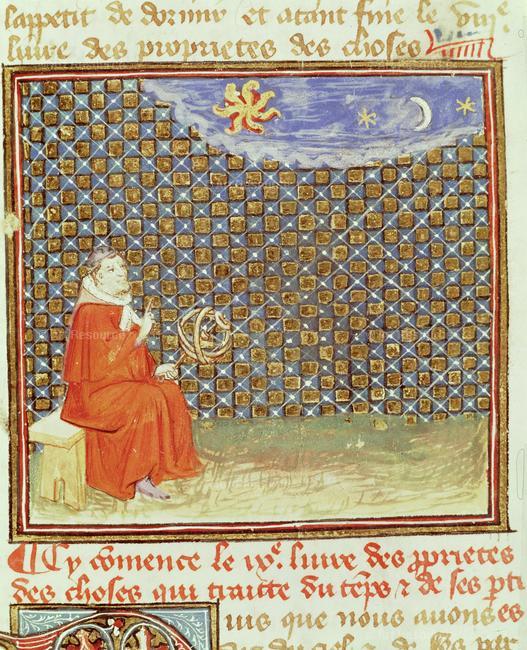 lappetit de dormir et atant fine le viiie
liure des proprietes des choses
Cy cōmence le ixe. liure des ꝓprietes
des choses qui traitte du tēps ⁊ de ses pti
uis que nous auons es